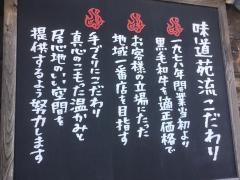 味道苑流こだわり
一九七八年開業当初より
黒毛和牛を適正価格で
お客様の立場にたった
地域一番店を目指す
手づくりにこだわり
真心のこもった温かみと
居心地のいい空間を
提供するよう努力します